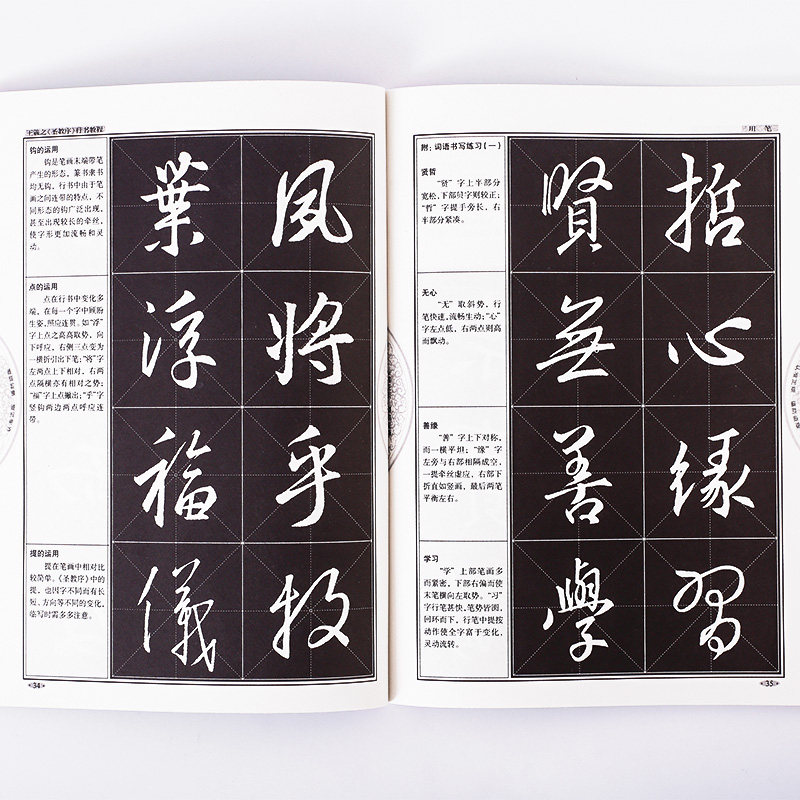 王羲之《圣教序》行书教程
钩的运用
钩是笔画末端带笔
产生的形态，篆书隶书
均无钩，行书中由于笔
画之间连带的特点，不
同形态的钩广泛出现，
甚至出现较长的牵丝，
使字形更加流畅和灵
动。
葉 夙
点的运用
点在行书中变化多
端，在每一个字中顾盼
生姿，照应连贯。如“浮”
字上点之高高取势，向
下呼应，右侧三点变为
一横折引出下笔；“将”字
左两点上下相对，右两
点隔横亦有相对之势；
“福”字上点撇出；“乎”字
竖钩两边两点呼应连
带。
浮 将
福 乎
提的运用
提在笔画中相对比
较简单。《圣教序》中的
提，也因字不同而有长
短、方向等不同的变化，
临写时需多多注意。
儀 牧
34
用笔
附：词语书写练习（一）
贤哲
“贤”字上半部分
宽松，下部贝字则较正；
“哲”字提手旁长，右
半部分紧凑。
賢 哲
无心
“无”取斜势，行
笔快速，流畅生动；“心”
字左点低，右两点则高
而飘动。
無 心
善缘
“善”字上下对称，
而一横平坦；“缘”字
左旁与右部相隔成空，
一提牵丝虚应，右部下
折直如竖画，最后两笔
平衡左右。
善 缘
学习
“学”上部笔画多
而紧密，下部右偏而使
末笔横向左取势。“习”
字行笔甚快，笔势皆源，
回环而下，行笔中提按
动作使全字富于变化，
灵动流转。
學 習
35